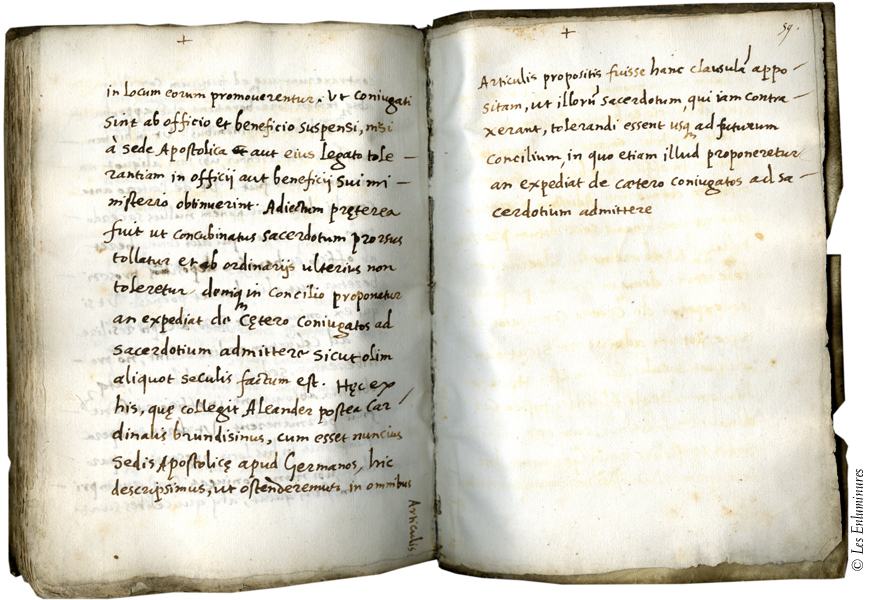 +
in locum eorum promoverentur. Ut coniugati
sint ab officio et beneficio suspensi, nisi
à sede Apostolica et aut eius legato tole-
rantiam in officij aut beneficij sui mi-
nisterio obtinuerint. Adiectum pręterea
fuit ut concubinatus sacerdotum prorsus
tollatur et ab ordinarijs ulterius non
toleretur. demq̃ in concilio proponatur
an expediat de cętero coniugatos ad
sacerdotium admittere sicut olim
aliquot seculis factum est. Hęc ex
his, quę collegit Aleander postea Car-
dinalis brundisinus, cum esset nuncius
Sedis Apostolicę apud Germanos, hic
descripsimus, ut ostenderemus, in omnibus
Articulis
+
59.
Articulis propositis fuisse hanc clausulã appo-
sitam, ut illorũ sacerdotum, qui iam contra-
xerant, tolerandi essent usq̃ ad futurum
concilium, in quo etiam illud proponeretur
an expediat de cætero coniugatos ad sa-
cerdotium admittere
© Les Enluminures